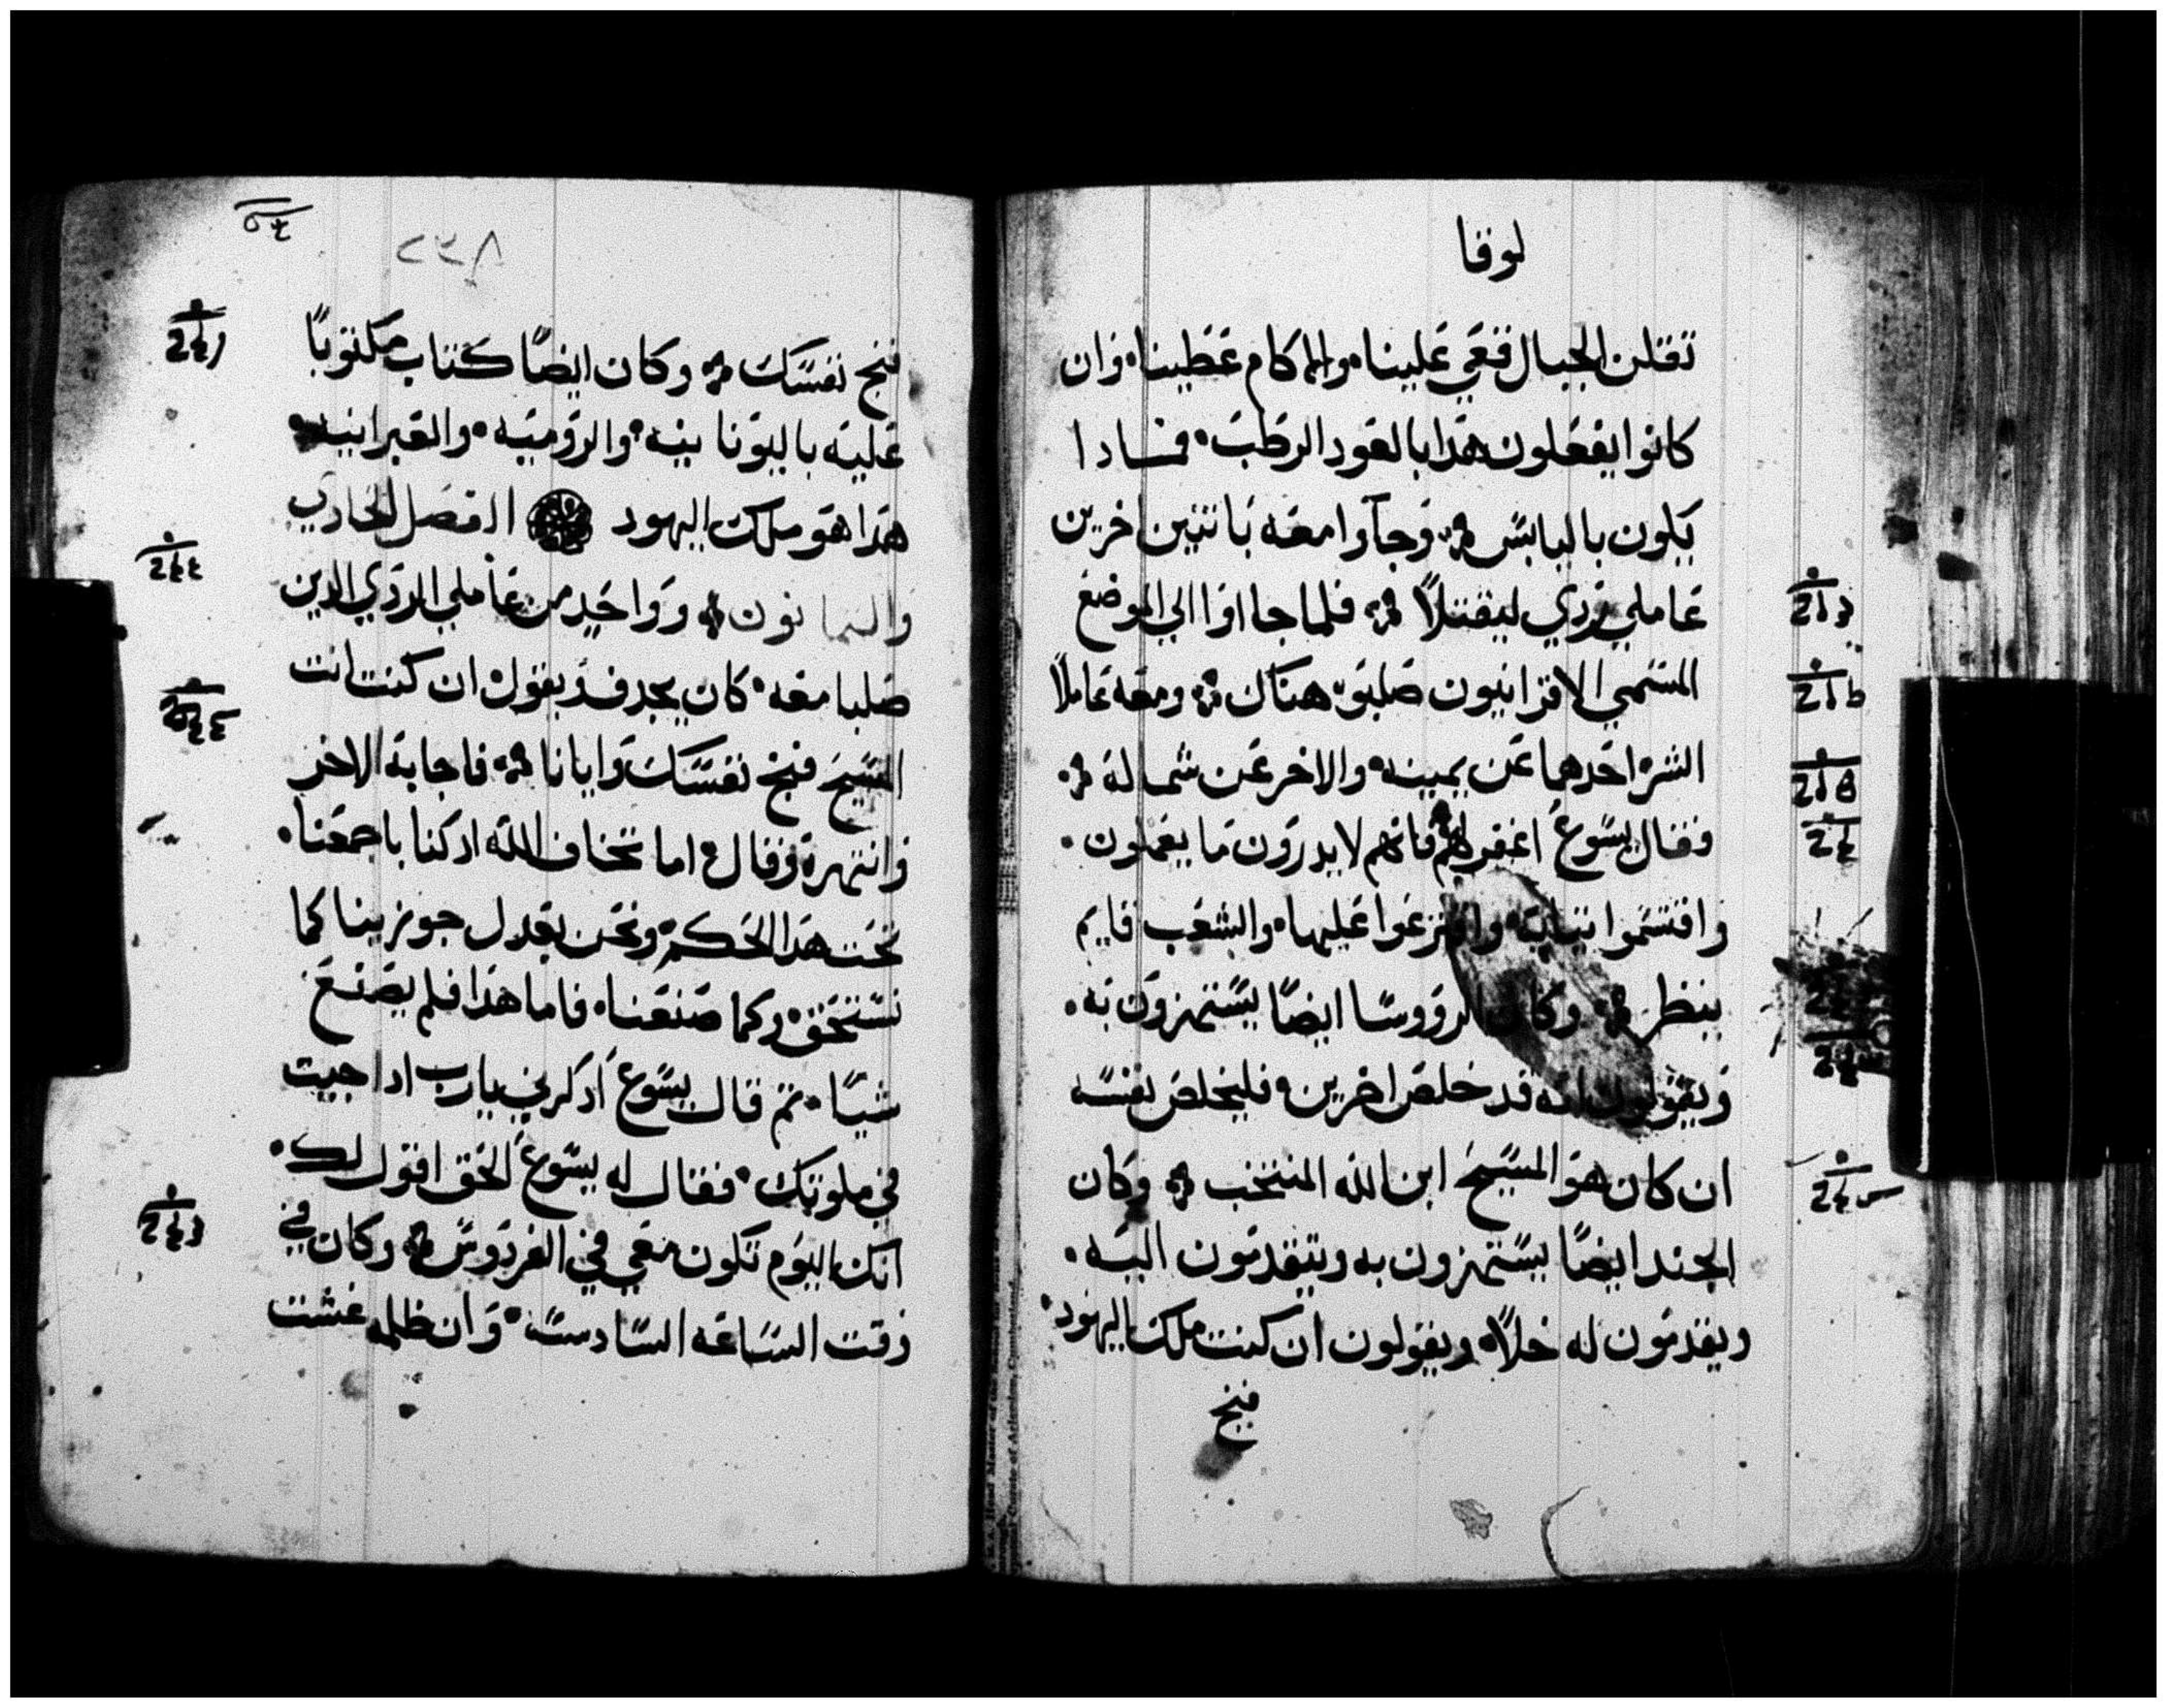 لوقا
تقتلن الجبال قعي علينا۰ والاكام غطينا۰ وان
كانوا يفعلون هدا بالعود الرطب۰ فمادا
يكون باليابس ۞ وجآوا معه باتنين اخرين
عاملي ردي ليقتلاً ۞ فلما جااوا الي الموضع
المسمي الاقرانيون صلبوه هناك ۞ ومعه عاملاً
الشر۰ احدهما عن يمينه۰ والاخر عن شماله ۞
وقال يسوع اغفر لهم فانهم لا يدرون ما يعملون۰
واقتسموا ثيابه۰ واقترعوا عليها۰ والشعب قايم
ينظر ۞ وكان الروسا ايضاً يستهزون به۰
ويقولون انه قد خلص اخرين۰ فليخلص نفسه
ان كان هو المسيح ابن الله المنتخب ۞ وكان
الجند ايضاً يستهزون به ويتقدمون اليه۰
ويقدمون له خلاً۰ ويقولون ان كنت ملك اليهود۰
فنج
٢٣٨
فنج نفسك ۞ وكان ايضاً كتاب مكتوباً
عليه باليونانيه۰ والروميه۰ والعبرانيه۰
هدا هو ملك اليهود الفصل الحادي
والتمانون ۞ وواحد من عاملي الردي الدين
صلبا معه۰ كان يجدف ويقول ان كنت انت
المسيح فنج نفسك وايانا ۞ فاجابه الاخر
وانتهره وقال۰ اما تخاف الله اد كنا باجمعنا۰
تحت هدا الحكم۰ ونحن بعدل جوزينا كما
نستحق۰ وكما صنعنا۰ فاما هدا فلم يصنع
شياً۰ تم قال ليسوع ادكرني يارب ادا جيت
في ملوتك۰ فقال له يسوع الحق اقول لك۰
انك اليوم تكون معي في الفردوس ۞ وكان في
وقت الساعه السادسه۰ وان ظلمه غشت